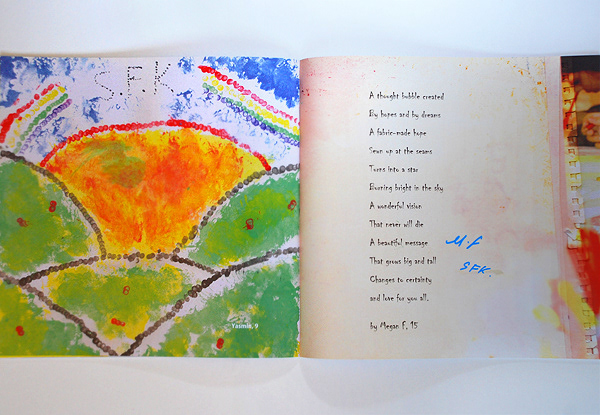 S.F.K
Yasmin, 9
A thought bubble created
By hopes and by dreams
A fabric-made hope
Sewn up at the seams
Turns into a star
Burning bright in the sky
A wonderful vision
That never will die
A beautiful message
That grows big and tall
Changes to certainty
and love for you all.
by Megan F, 15
M.F
SFK.